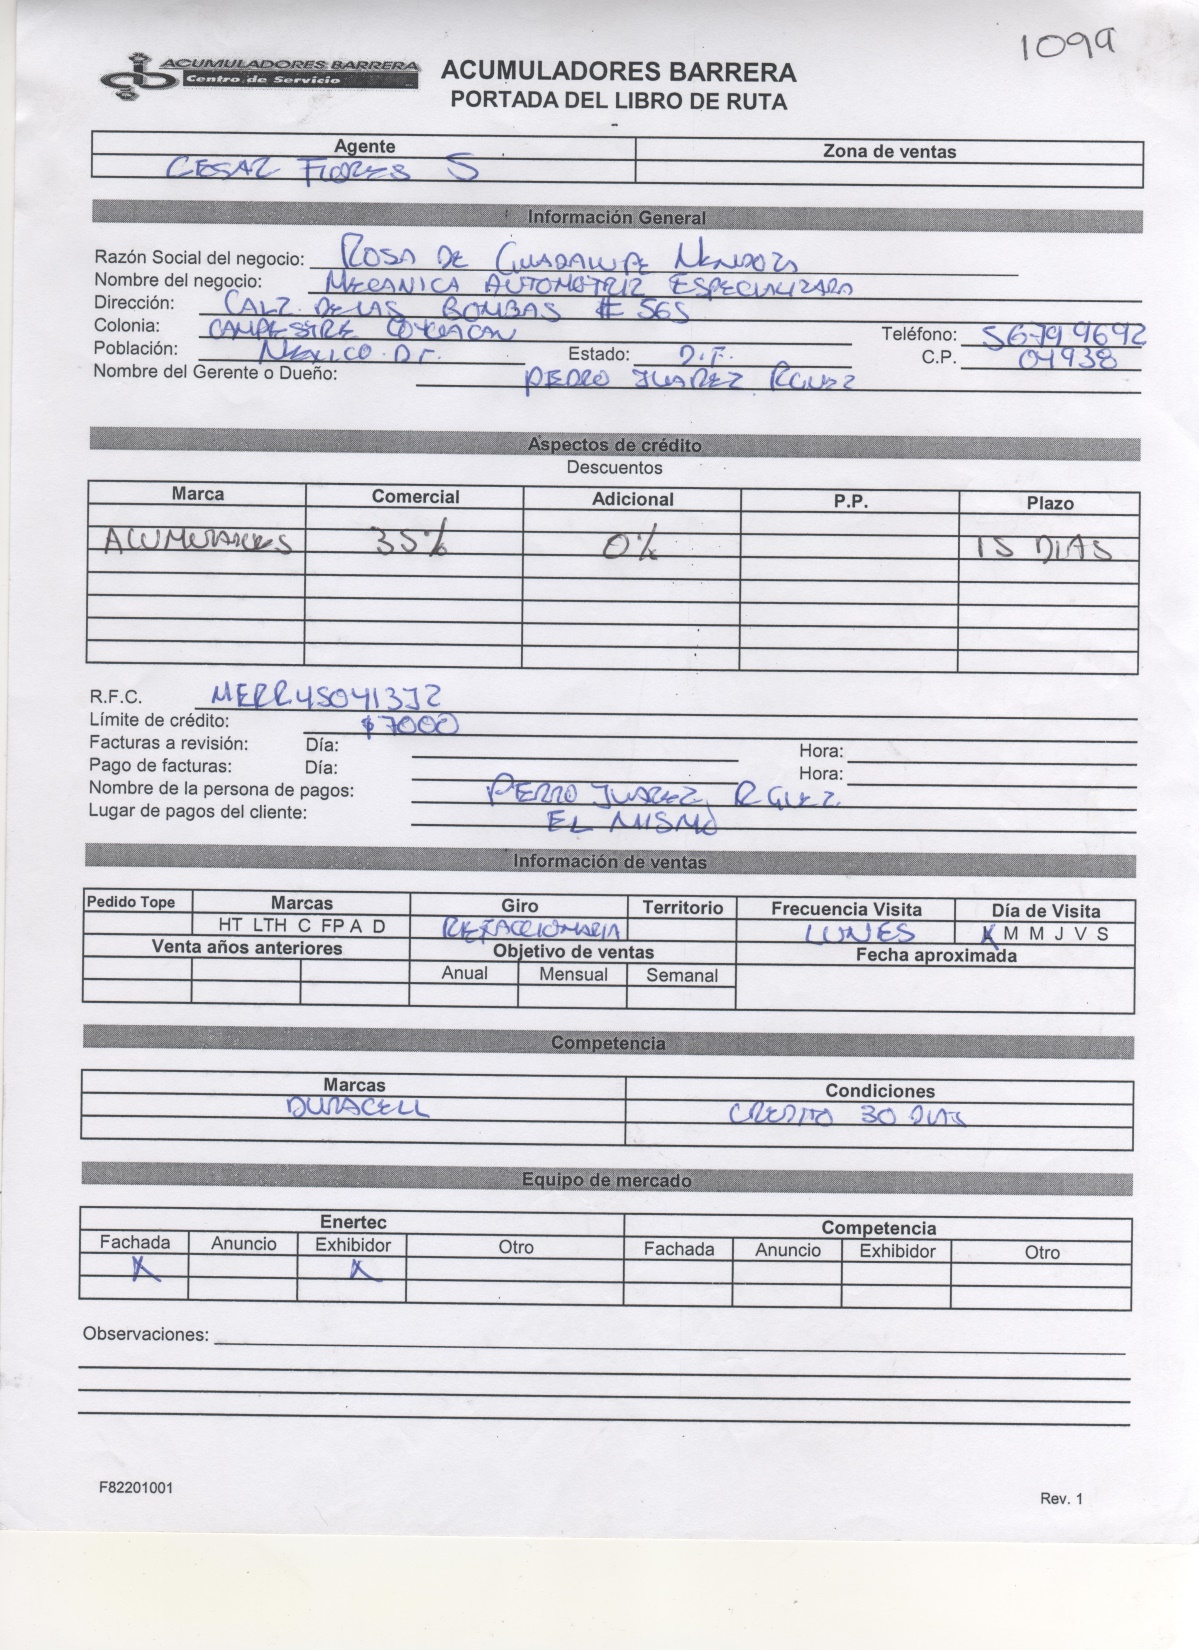 1099
ACUMULADORES BARRERA
Centro de Servicio
ACUMULADORES BARRERA
PORTADA DEL LIBRO DE RUTA
Agente Zona de ventas
CESAR FLORES S
Información General
Razón Social del negocio: ROSA DE GUADALUPE MENDOZA
Nombre del negocio: MECANICA AUTOMOTRIZ ESPECIALIZADA
Dirección: CALZ. DE LAS BOMBAS # 565
Colonia: CAMPESTRE COYOACAN Teléfono: 56799692
Población: MEXICO D.F. Estado: D.F. C.P. 04938
Nombre del Gerente o Dueño: PEDRO JUAREZ RGUEZ
Aspectos de crédito
Descuentos
Marca Comercial Adicional P.P. Plazo
ACUMULADORES 35% 0% 15 DIAS
R.F.C. MERR450413J2
Límite de crédito: $7000
Facturas a revisión: Día: Hora:
Pago de facturas: Día: Hora:
Nombre de la persona de pagos: PEDRO JUAREZ RGUEZ
Lugar de pagos del cliente: EL MISMO
Información de ventas
Pedido Tope Marcas Giro Territorio Frecuencia Visita Día de Visita
HT LTH C FP A D REFACCIONARIA LUNES X M M J V S
Venta años anteriores Objetivo de ventas Fecha aproximada
Anual Mensual Semanal
Competencia
Marcas Condiciones
DURACELL CREDITO 30 DIAS
Equipo de mercado
Enertec Competencia
Fachada Anuncio Exhibidor Otro Fachada Anuncio Exhibidor Otro
X X
Observaciones:
F82201001 Rev. 1